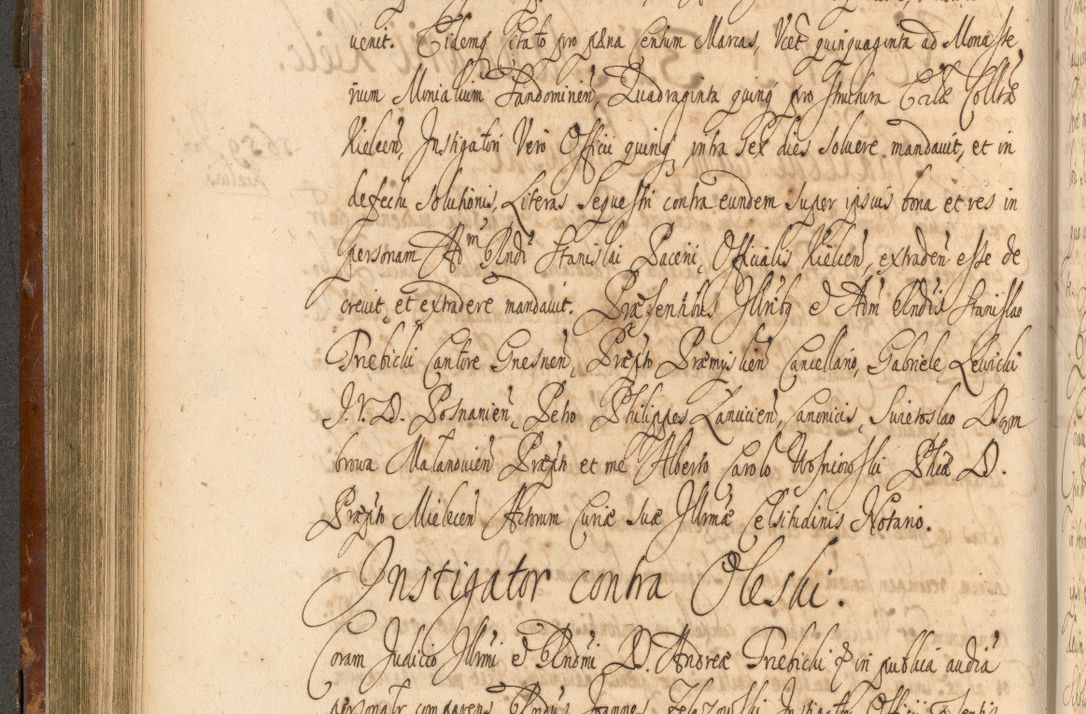 venit. Eidemq̃ citato pro pæna centum Marcas, Vcet quinquaginta ad Monaste
rium Monialium Sandominen̄, Quadraginta quinq̃ pro structura Eccl̃æ Coll̃tæ
Kielcen̄, Instigatori Vero Officii quinq̃ intra sex dies solvere mandavit, et in
defectu solutionis, Literas sequestri contra eundem super ipsius bona et res in
personam Adm̃ R̃ndi Stanislai Paceni, Officialis Kielcen̄, extraden̄ esse de
crevit, et extradere mandavit. Præsentibus Ill̃ribq̃ et Adm̃ R̃ndis Stanislao
Trebicki Cantore Gnesnen̄, Præpto Præmyslien̄ Cancellario, Gabriele Lewicki
J.V.D. Posnanien̄, Petro Philippes Lanucien̄, Canonicis, Swietoslao Dom
browa Malanowien̄ Præpto et me Alberto Carolo Wosniowski Phiæ D.
Præpto Mielecen̄ Actorum Curiæ suæ Ill̃rmæ Celsitudinis Notario.
Instigator contra Oleski.
Coram Judicio Ill̃rmi et R̃ndmi D. Andreæ Trebicki &amp; in publica audia
personalr comparens R̃ndus Joannes Zelazowski Instigator Officii